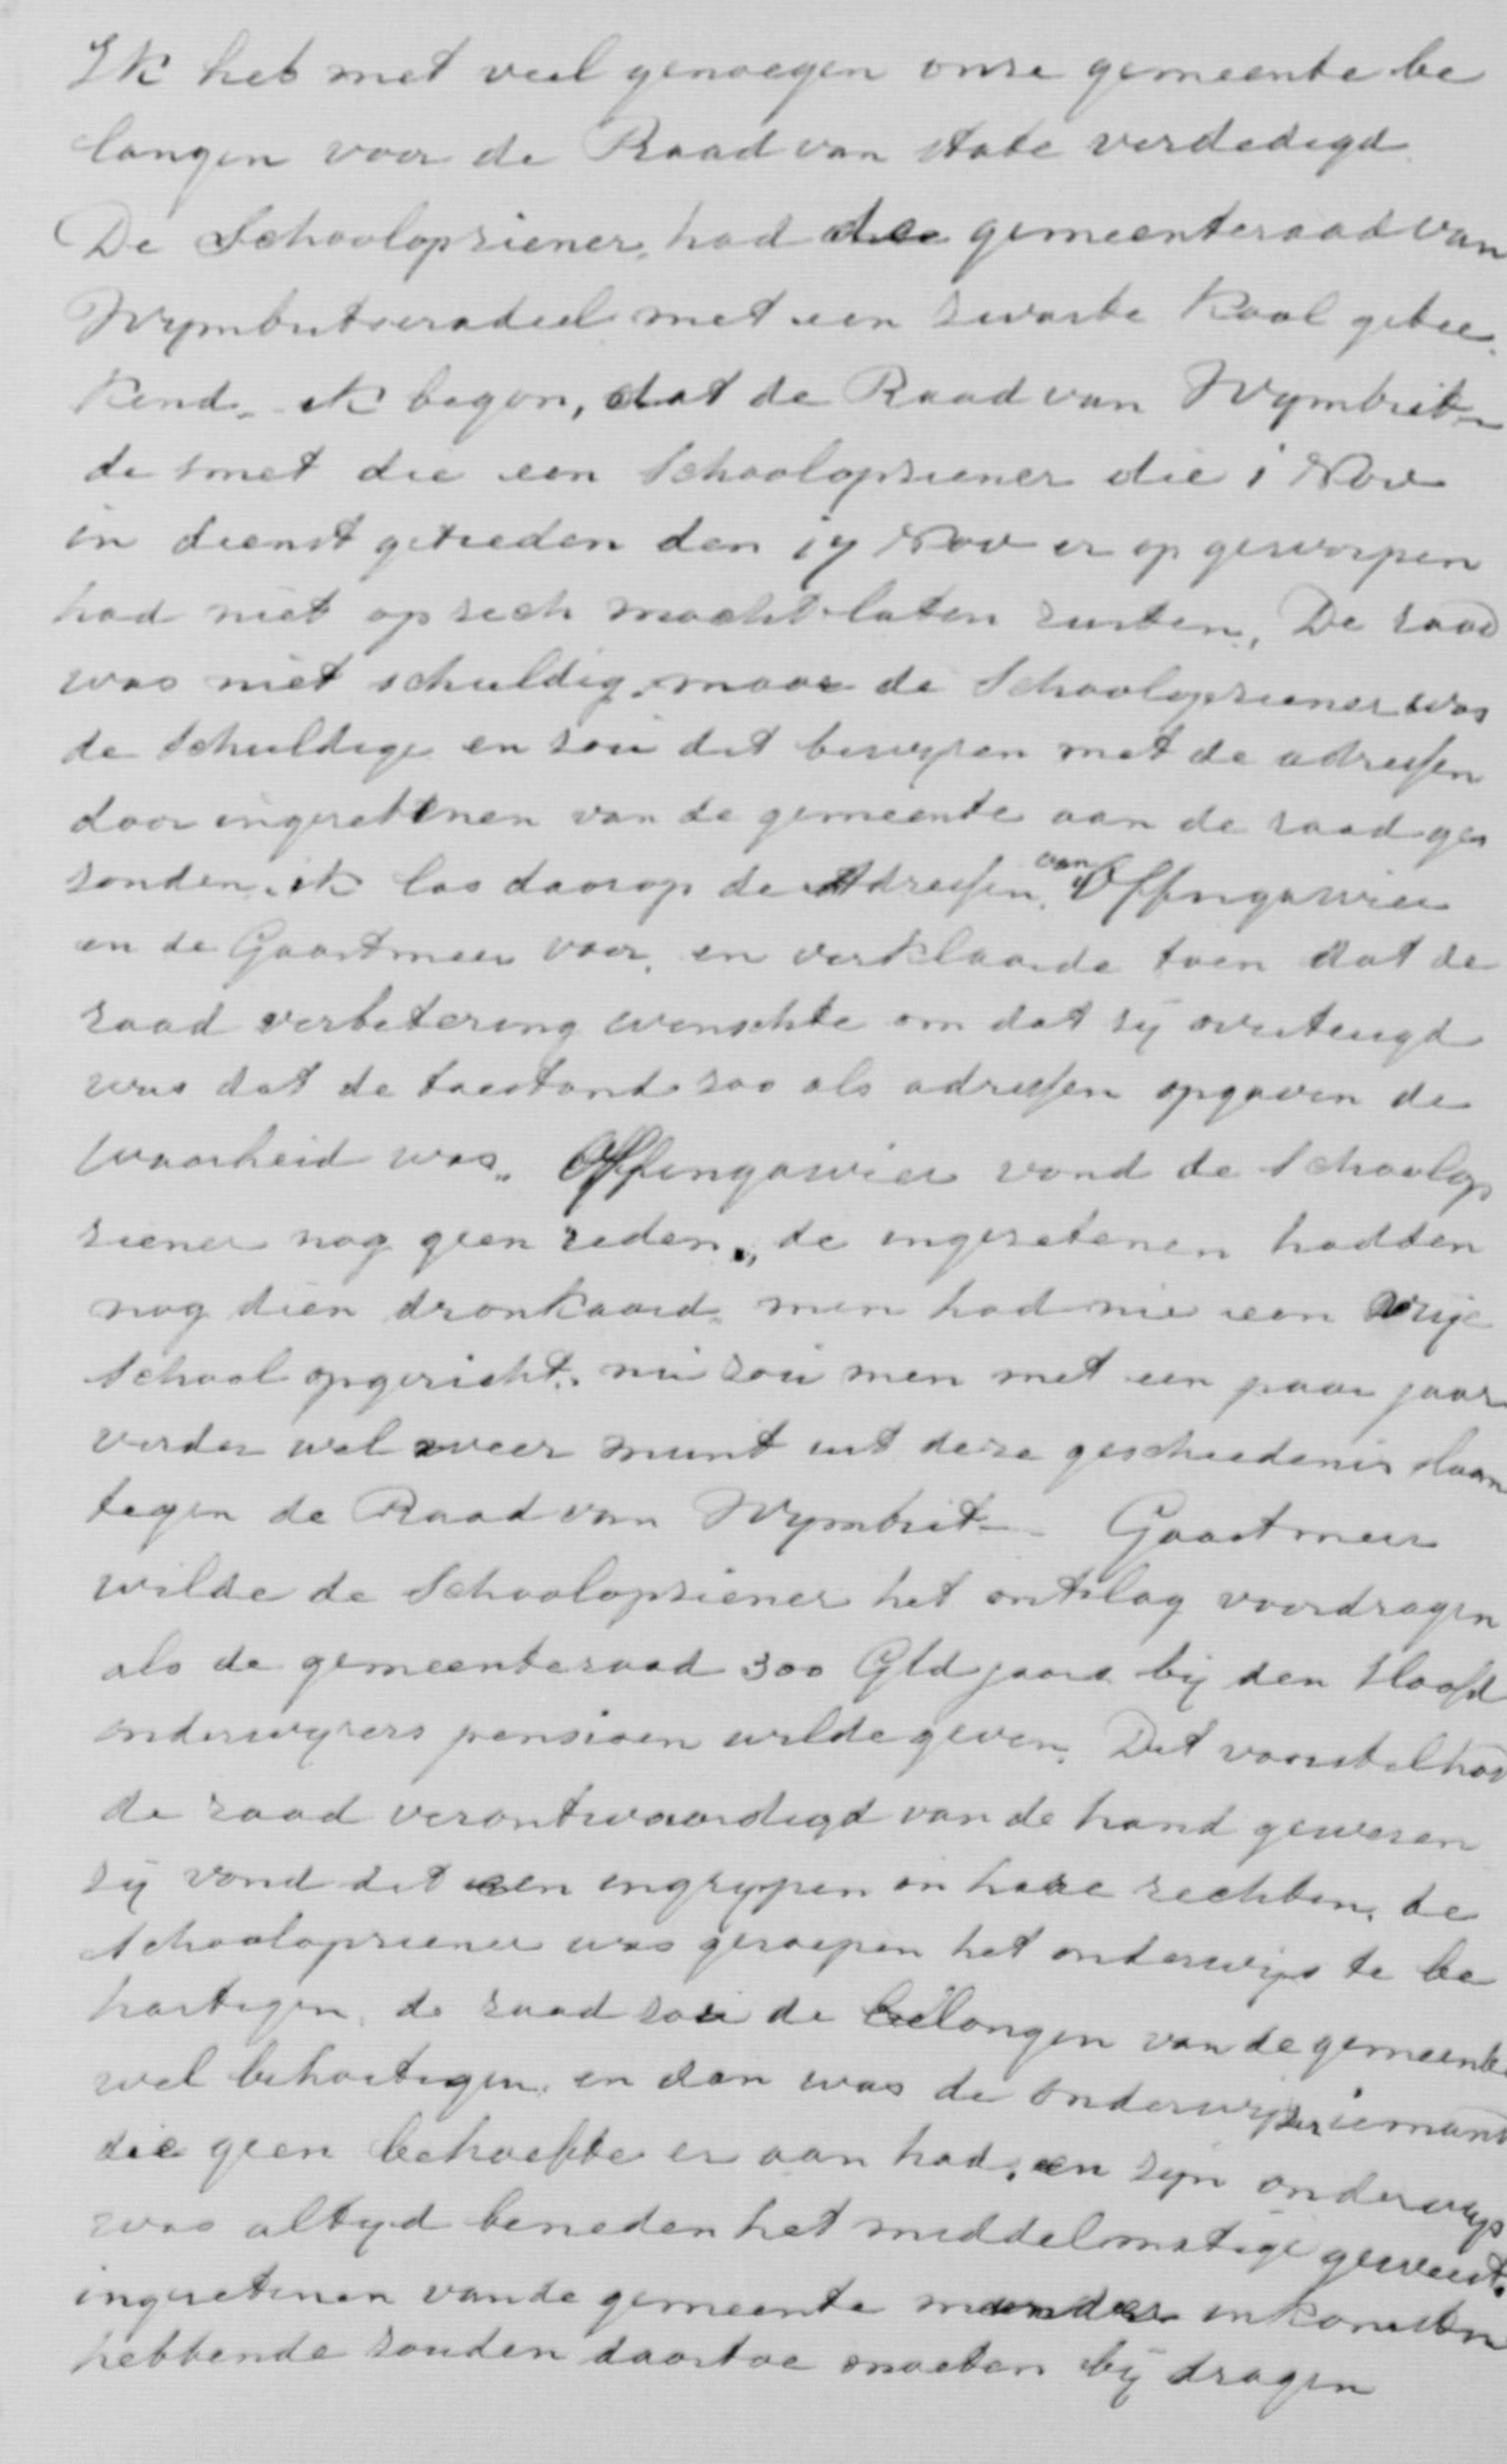 Ik heb met veel genoegen onze gemeente be
langen voor de Raad van state verdedigd
De Schoolopziener, had de gemeenteraad van
Wymbritseradeel met een zwarte kool getee
kend. ik begon, dat de Raad van Wymbrit-
de smet die een Schoolopziener die 1 Nov
in dienst getreden den 17 Nov er op geworpen
had niet op zich mocht laten rusten, De raad
was niet schuldig, maar de Schoolopziener was
de schuldige en zou dit bewyzen met de adressen
door ingezetenen van de gemeente aan de raad ge
zonden. ik las daarop de Adressen, van Offingawier
en de Gaastmeer voor, en verklaarde toen dat de
raad verbetering wenschte om dat zij overtuigd
was dat de toestand zoo als adressen opgaven de
waarheid was. Offingawier vond de Schoolop
ziener nog geen reden., de ingezetenen hadden
nog dien dronkaard men had nu een vrije
School opgericht. nu zou men met een paar jaar
verder wel weer munt uit deze geschiedenis slaan
tegen de Raad van Wymbrit- Gaastmeer
wilde de Schoolopziener het ontslag voordragen
als de gemeenteraad 300 Gld jaars bij den Hoofd
onderwyzers pensioen wilde geven. Dit voorstel had
de raad verontwaardigd van de hand gewezen
zij vond dit een ingrypen in hare rechten, de
Schoolopziener was geroepen het onderwijs te be
hartigen, de raad zou de belangen van de gemeente
wel behartigen, en dan was de onderwijzer iemand
die geen behoefte er aan had, en zijn onderwys
was altyd beneden het middelmatige geweest.
ingezetenen van de gemeente minder inkomsten
hebbende zouden daartoe moeten bij dragen